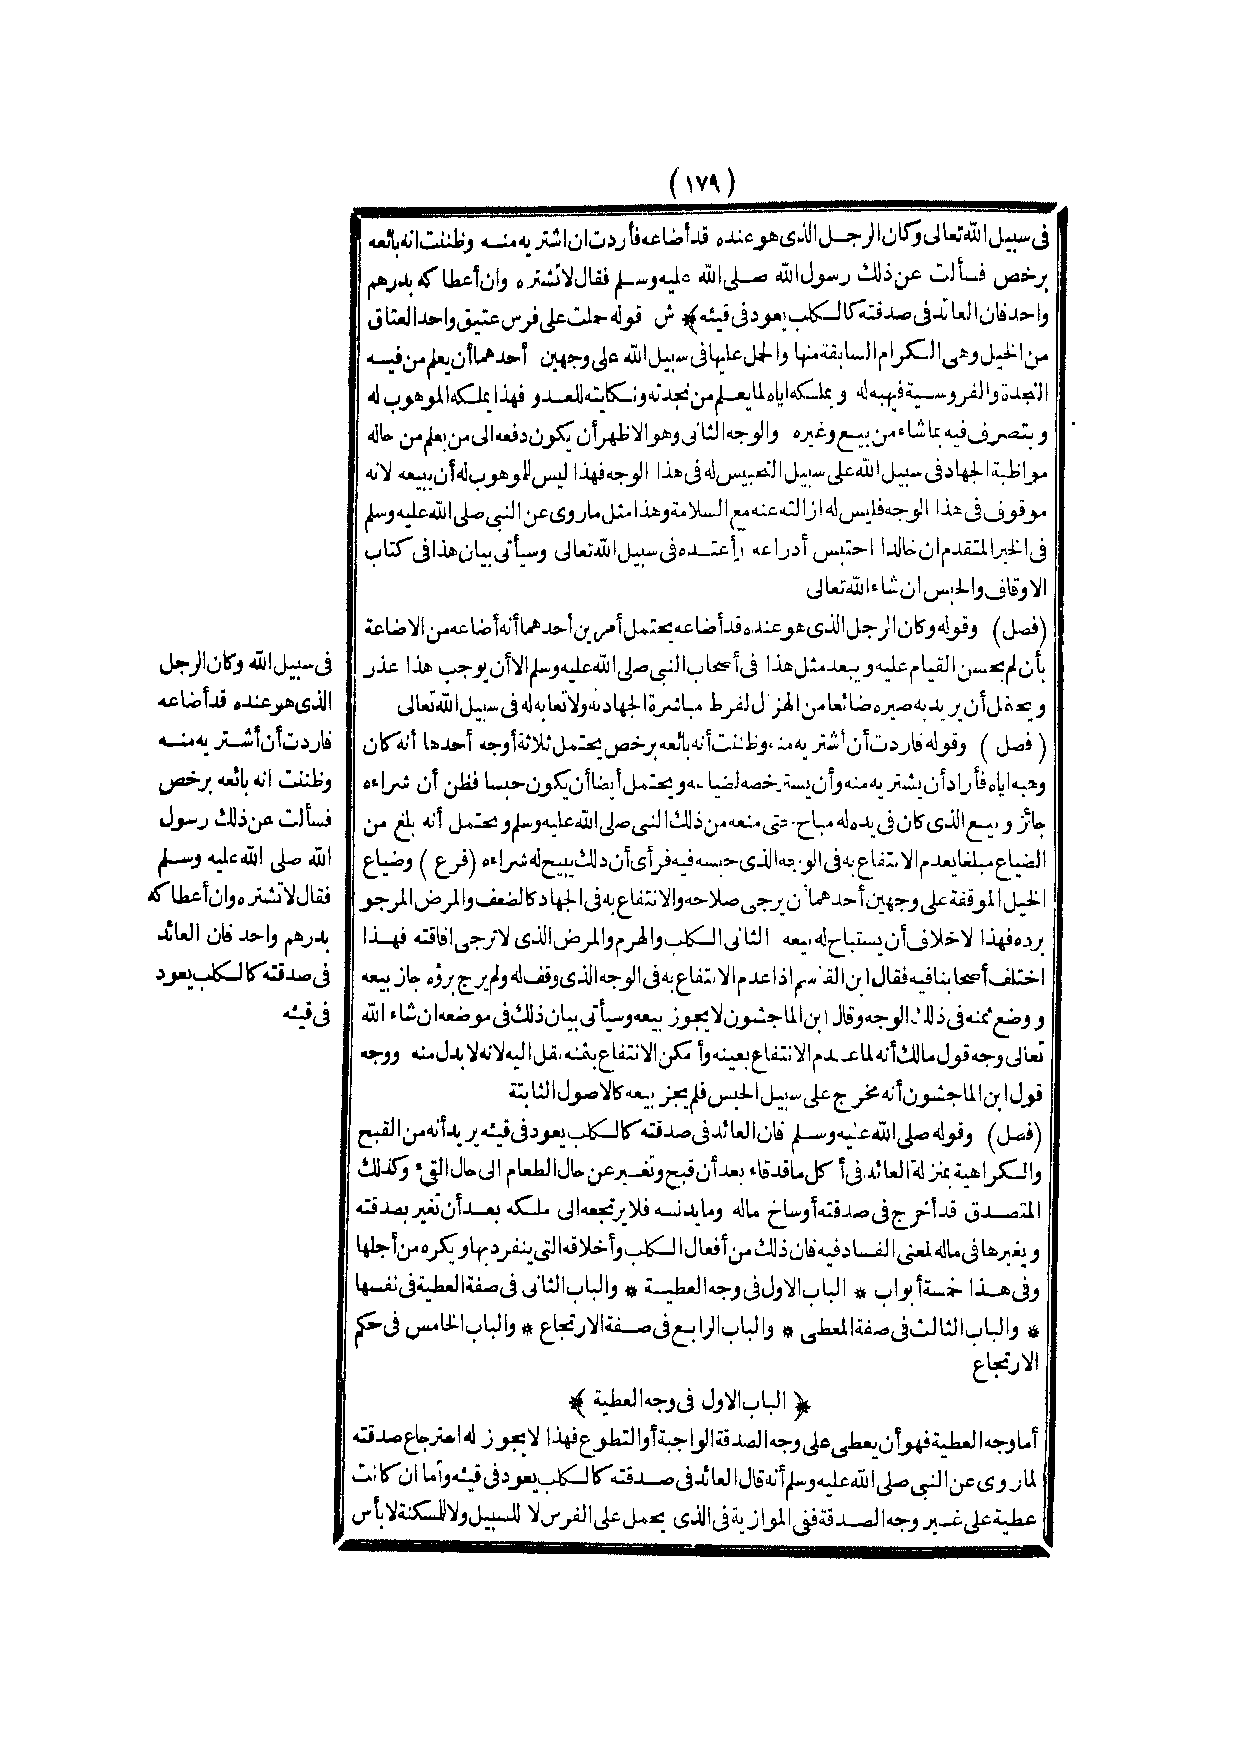 (١٧٩)
فى سبيل الله تعالى وكان الرجل الذى هو عنده قد أضاعه فأردت ان اشتريه منه وظننت انه بائعه
برخص فسألت عن ذلك رسول الله صلى الله عليه وسلم فقال لا تشتره وان أعطاكه بدرهم
واحد فان العائد فى صدقته كالكلب يعود فى قيئه ﴾ ش قوله حملت على فرس عتيق واحد العتاق
من الخيل وهى الكرام السابقة منها والحمل عليها فى سبيل الله على وجهين أحدهما أن يعلم من فيه
النجدة والفروسية فيهبه له ويملكه اياه لما يعلم من نجدته ونكايته للعدو فهذا يملكه الموهوب له
ويتصرف فيه بما شاء من بيع وغيره والوجه الثانى وهو الاظهر أن يكون دفعه الى من يعلم من حاله
مواظبة الجهاد فى سبيل الله على سبيل التحبيس له فى هذا الوجه فهذا ليس للموهوب له أن يبيعه لانه
موقوف فى هذا الوجه فليس له ازالته عنه مع السلامة وهذا مثل ما روى عن النبى صلى الله عليه وسلم
فى الخبر المتقدم ان خالدا احتبس أدراعه وأعتده فى سبيل الله تعالى وسيأتى بيان هذا فى كتاب
الاوقاف والحبس ان شاء الله تعالى
(فصل) وقوله وكان الرجل الذى هو عنده قد أضاعه يحتمل أمرين أحدهما أنه أضاعه من الاضاعة
بأن لم يحسن القيام عليه ويبعد مثل هذا فى أصحاب النبى صلى الله عليه وسلم الا أن يوجب هذا عذر
ويحتمل أن يريد به صيره ضائعا من الهزال لفرط مباشرة الجهاد به ولا تعابه له فى سبيل الله تعالى
(فصل) وقوله فاردت أن أشتريه منه وظننت أنه بائعه برخص يحتمل ثلاثة أوجه أحدها أنه كان
وهبه اياه فأراد أن يشتريه منه وأن يسترخصه لضياعه ويحتمل أيضا أن يكون حبسا فظن أن شراءه
جائز وبيع الذى كان فى يده له مباح حتى منعه من ذلك النبى صلى الله عليه وسلم ويحتمل أنه بلغ من
الضياع مبلغا يعدم الانتفاع به فى الوجه الذى حبسه فيه فرأى أن ذلك يبيح له شراءه (فرع) وضياع
الخيل الموقفة على وجهين أحدهما أن يرجى صلاحه والانتفاع به فى الجهاد كالضعف والمرض المرجو
برده فهذا لا خلاف أن يستباح له بيعه الثانى الكلب والهرم والمرض الذى لا ترجى افاقته فهذا
اختلف أصحابنا فيه فقال ابن القاسم اذا عدم الانتفاع به فى الوجه الذى وقف له ولم يرج برؤه جاز بيعه
ووضع ثمنه فى ذلك الوجه وقال ابن الماجشون لا يجوز بيعه وسيأتى بيان ذلك فى موضعه ان شاء الله
تعالى وجه قول مالك أنه لما عدم الانتفاع بعينه وأمكن الانتفاع بثمنه نقل اليه لانه لا بدل منه ووجه
قول ابن الماجشون أنه مخرج على سبيل الحبس فلم يجز بيعه كالاصول الثابتة
(فصل) وقوله صلى الله عليه وسلم فان العائد فى صدقته كالكلب يعود فى قيئه يريد أنه من القبح
والكراهية بمنزلة العائد فى أكل ما قد قاء بعد أن قبح وتغير عن حال الطعام الى حال القىء وكذلك
المتصدق قد أخرج فى صدقته أوساخ ماله وما يدنسه فلا يرتجعه الى ملكه بعد أن تغير بصدقته
ويغيرها فى ماله لمعنى الفساد فيه فان ذلك من أفعال الكلب وأخلاقه التى ينفرد بها ويكره من أجلها
وفى هذا خمسة أبواب * الباب الاول فى وجه العطية * والباب الثانى فى صفة العطية فى نفسها
* والباب الثالث فى صفة المعطى * والباب الرابع فى صفة الارتجاع * والباب الخامس فى حكم
الارتجاع
﴿ الباب الاول فى وجه العطية ﴾
أما وجه العطية فهو أن يعطى على وجه الصدقة الواجبة أو التطوع فهذا لا يجوز له استرجاع صدقته
لما روى عن النبى صلى الله عليه وسلم أنه قال العائد فى صدقته كالكلب يعود فى قيئه وأما ان كانت
عطية على غير وجه الصدقة ففى الموازية فى الذى يحمل على الفرس لا للسبيل ولا للمسكنة لا بأس
فى سبيل الله وكان الرجل
الذى هو عنده قد أضاعه
فاردت أن أشتريه منه
وظننت انه بائعه برخص
فسألت عن ذلك رسول
الله صلى الله عليه وسلم
فقال لا تشتره وان أعطاكه
بدرهم واحد فان العائد
فى صدقته كالكلب يعود
فى قيئه